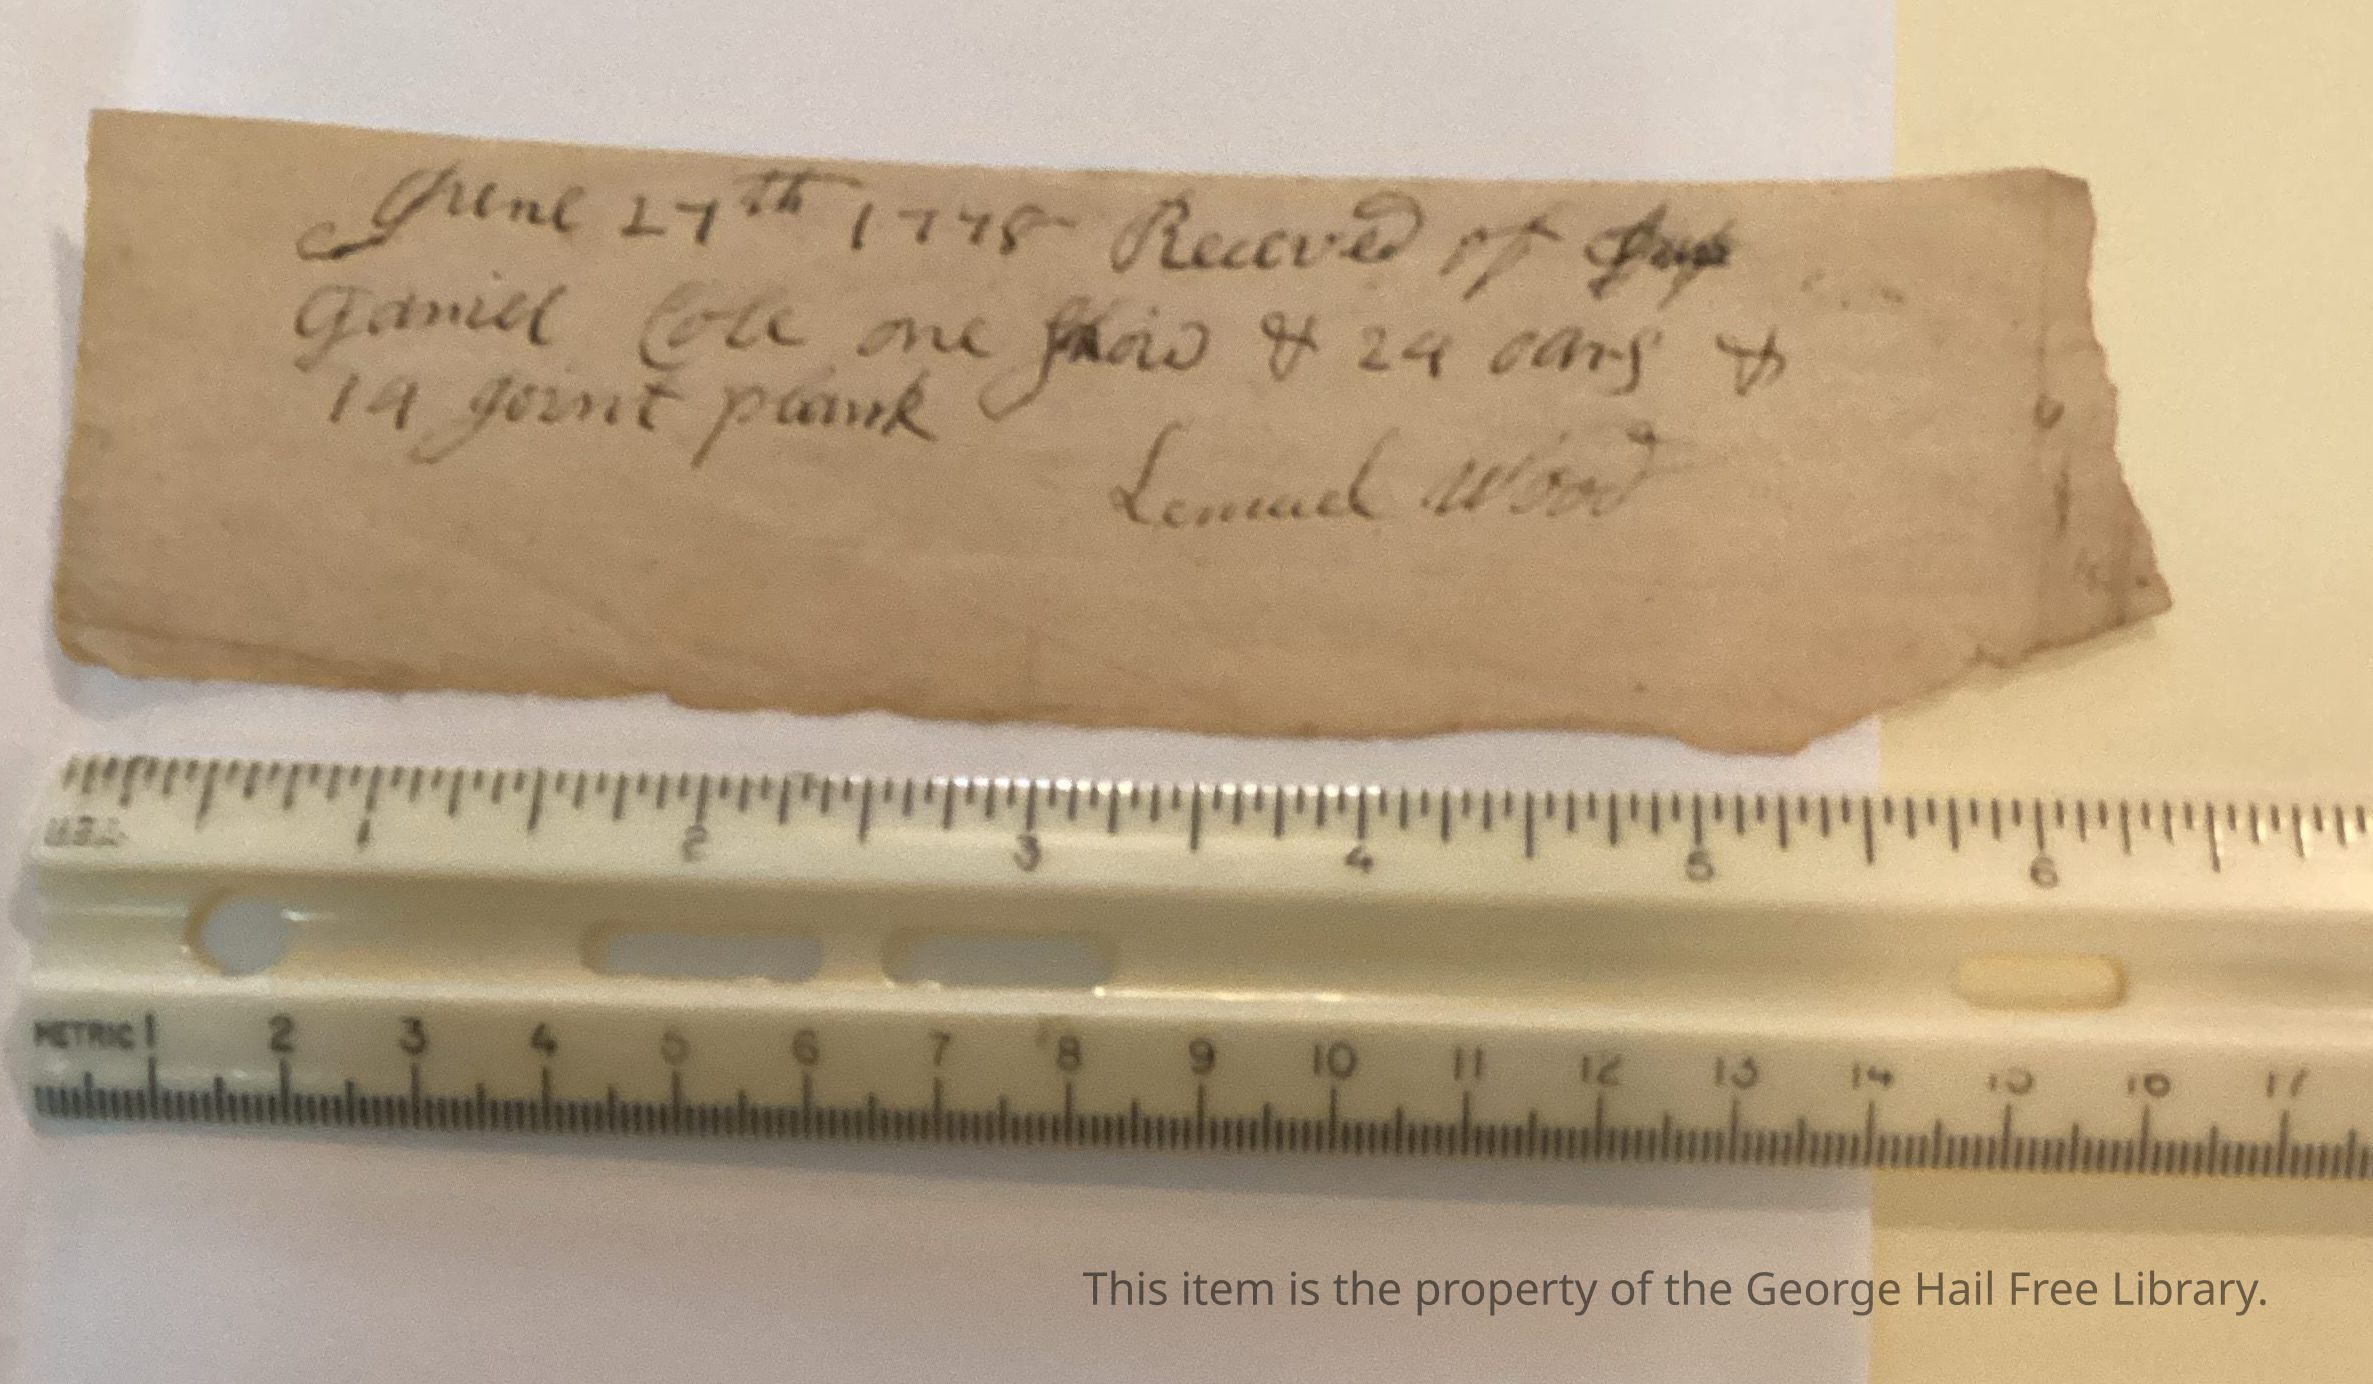 June 27th 1778 Receved of
Daniel Cole one & 24 oars &
14 joint plank
Lemuel Wood
1 2 3 4 5 6
METRIC 1 2 3 4 5 6 7 8 9 10 11 12 13 14 15 16 17
This item is the property of the George Hail Free Library.